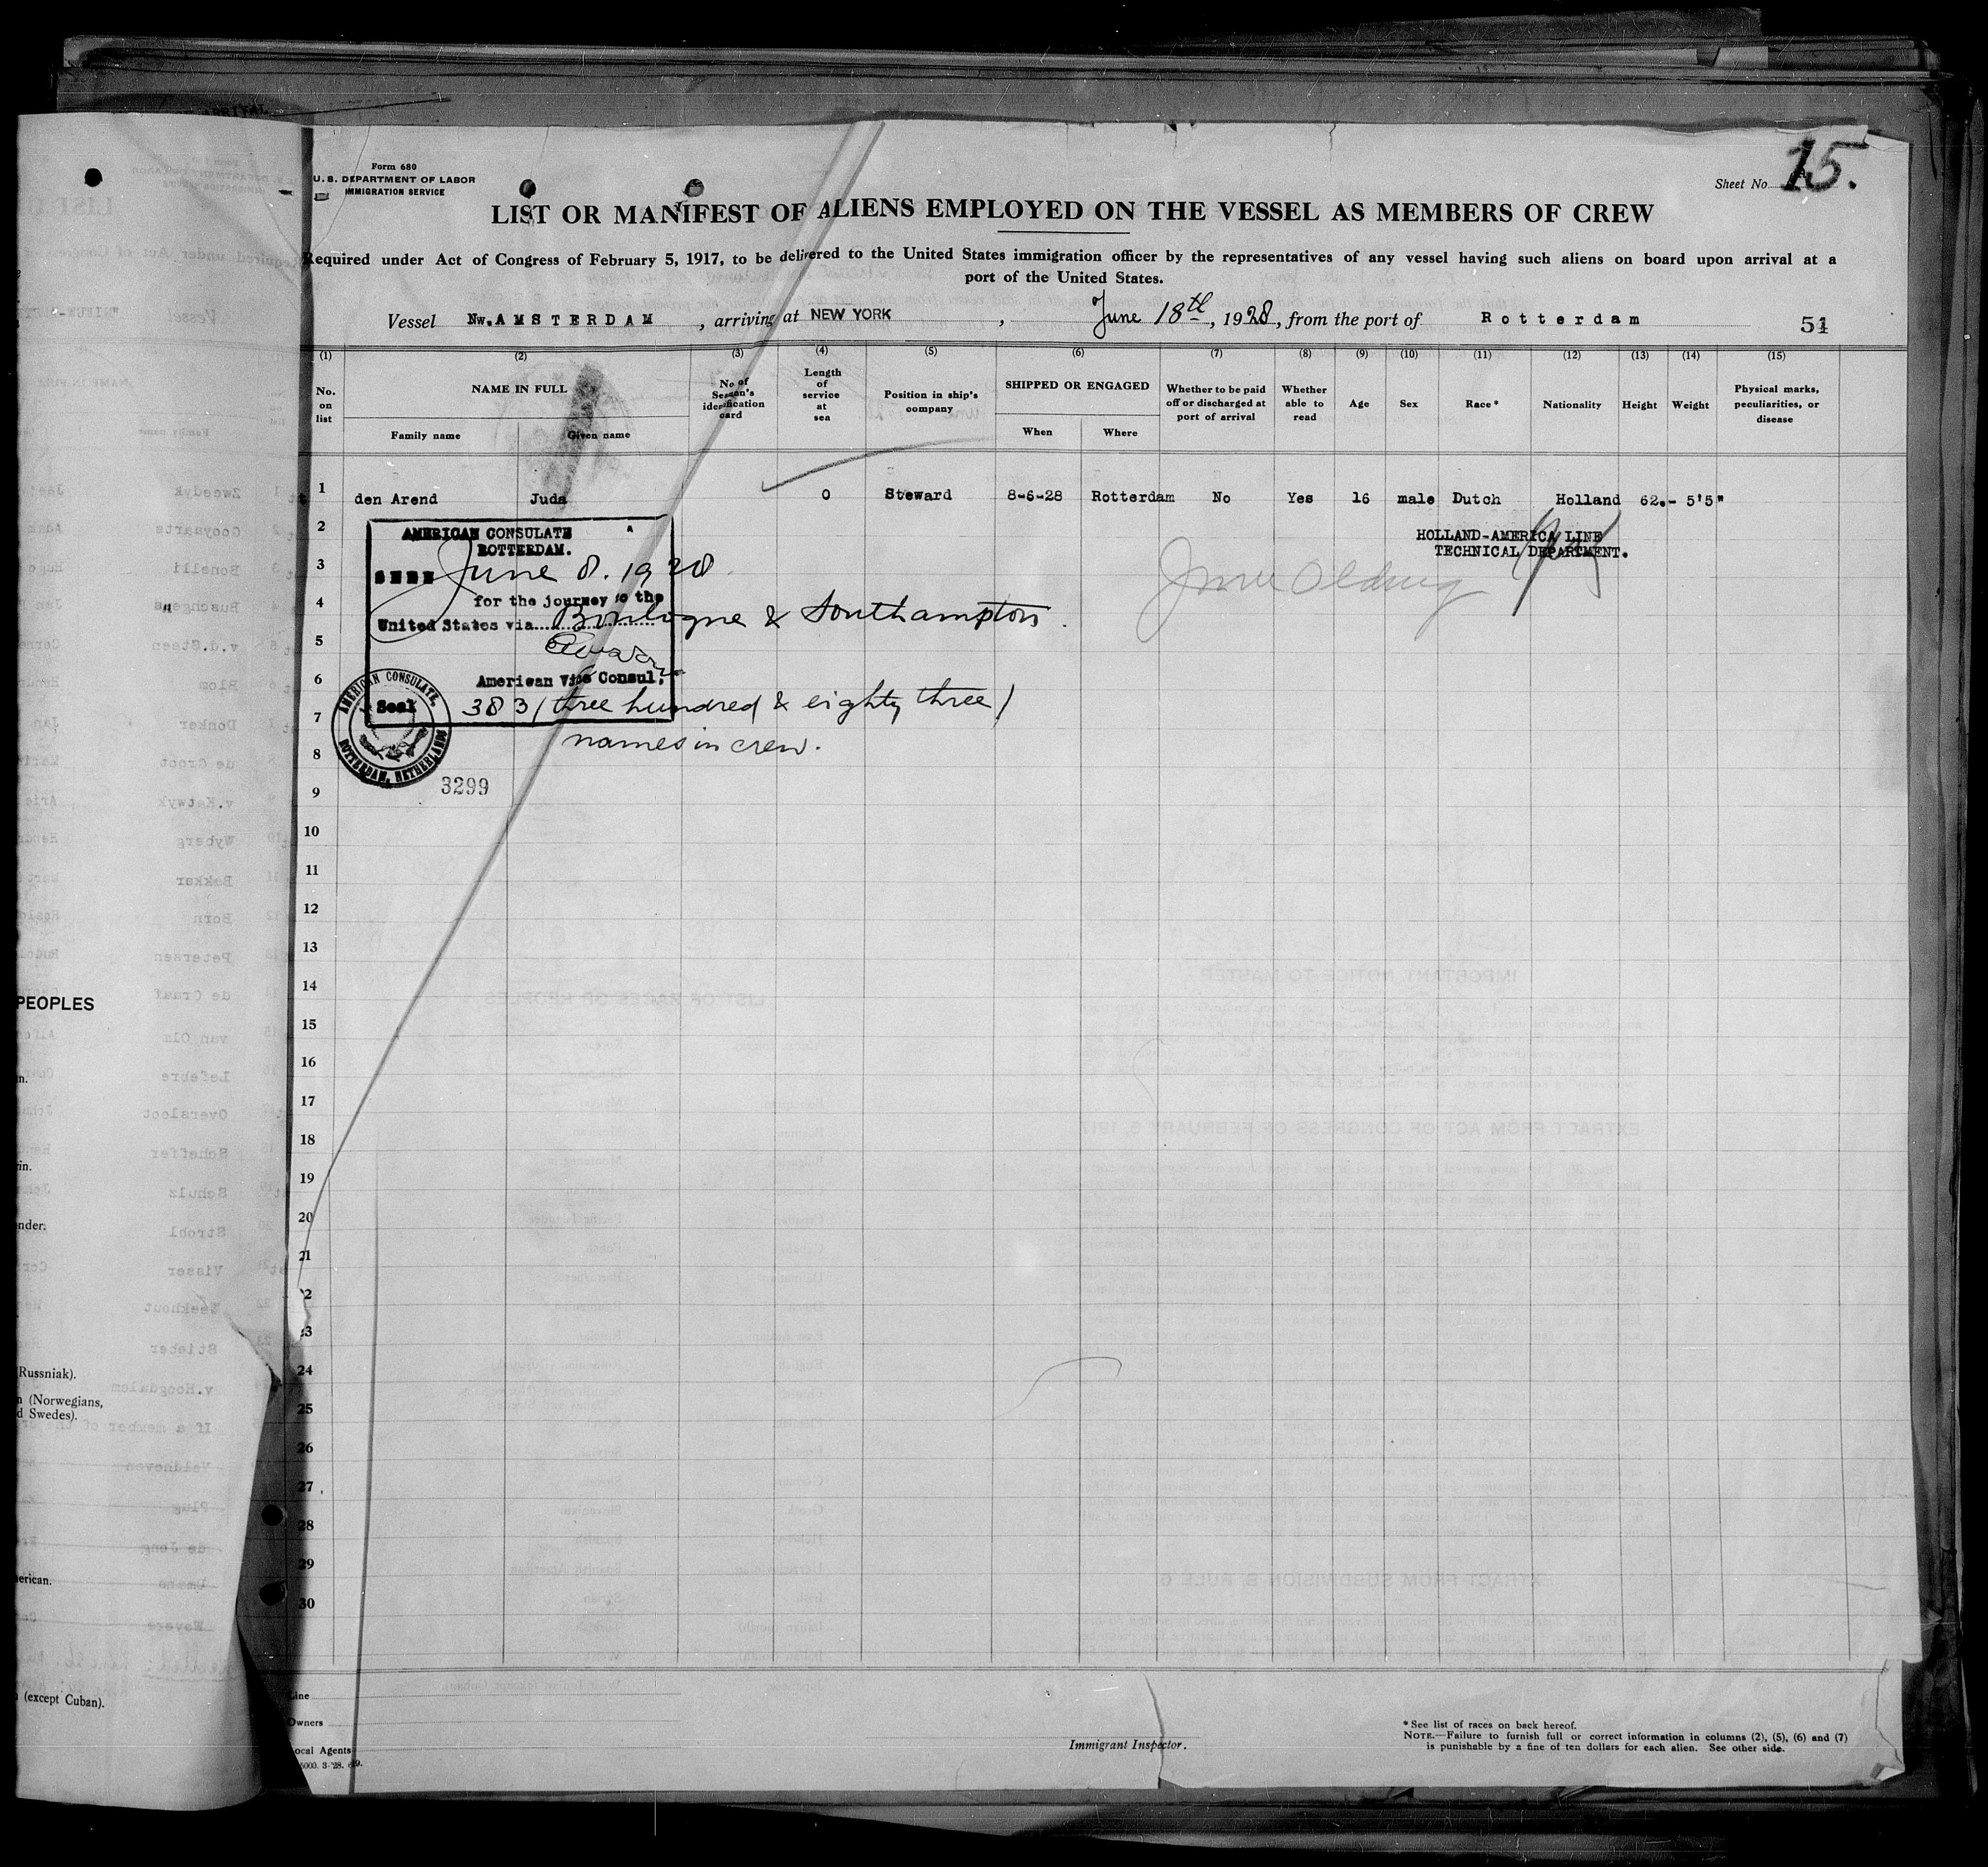 Form 680
U. S. DEPARTMENT OF LABOR
IMMIGRATION SERVICE
Sheet No. 15.
LIST OR MANIFEST OF ALIENS EMPLOYED ON THE VESSEL AS MEMBERS OF CREW
Required under Act of Congress of February 5, 1917, to be delivered to the United States immigration officer by the representatives of any vessel having such aliens on board upon arrival at a
port of the United States.
Vessel Nw.AMSTERDAM, arriving at NEW YORK, June 18th, 1928, from the port of Rotterdam
51
(1) (2) (3) (4) (5) (6) (7) (8) (9) (10) (11) (12) (13) (14) (15)
No. on list
NAME IN FULL
Family name
Given name
No of Seaman's identification card
Length of service at sea
Position in ship's company
SHIPPED OR ENGAGED
When
Where
Whether to be paid off or discharged at port of arrival
Whether able to read
Age
Sex
Race*
Nationality
Height
Weight
Physical marks, peculiarities, or disease
1 den Arend Juda 0 Steward 8-6-28 Rotterdam No Yes 16 male Dutch Holland 62.- 5'5"
2
3
4
5
6
7
8
9
10
11
12
13
14
15
16
17
18
19
20
21
2
3
24
25
26
27
28
29
30
AMERICAN CONSULATE
ROTTERDAM.
SEEN June 8. 1928
for the journey to the
United States via Boulogne & Southampton.
American Vice Consul.
Seal
383 (three hundred & eighty three)
names in crew.
AMERICAN CONSULATE,
ROTTERDAM, NETHERLANDS
3299
HOLLAND-AMERICA LINE
TECHNICAL DEPARTMENT.
Line
Owners
Local Agents
Immigrant Inspector.
* See list of races on back hereof.
NOTE.—Failure to furnish full or correct information in columns (2), (5), (6) and (7)
is punishable by a fine of ten dollars for each alien. See other side.
PEOPLES
(Russniak).
(Norwegians,
d Swedes).
(except Cuban).